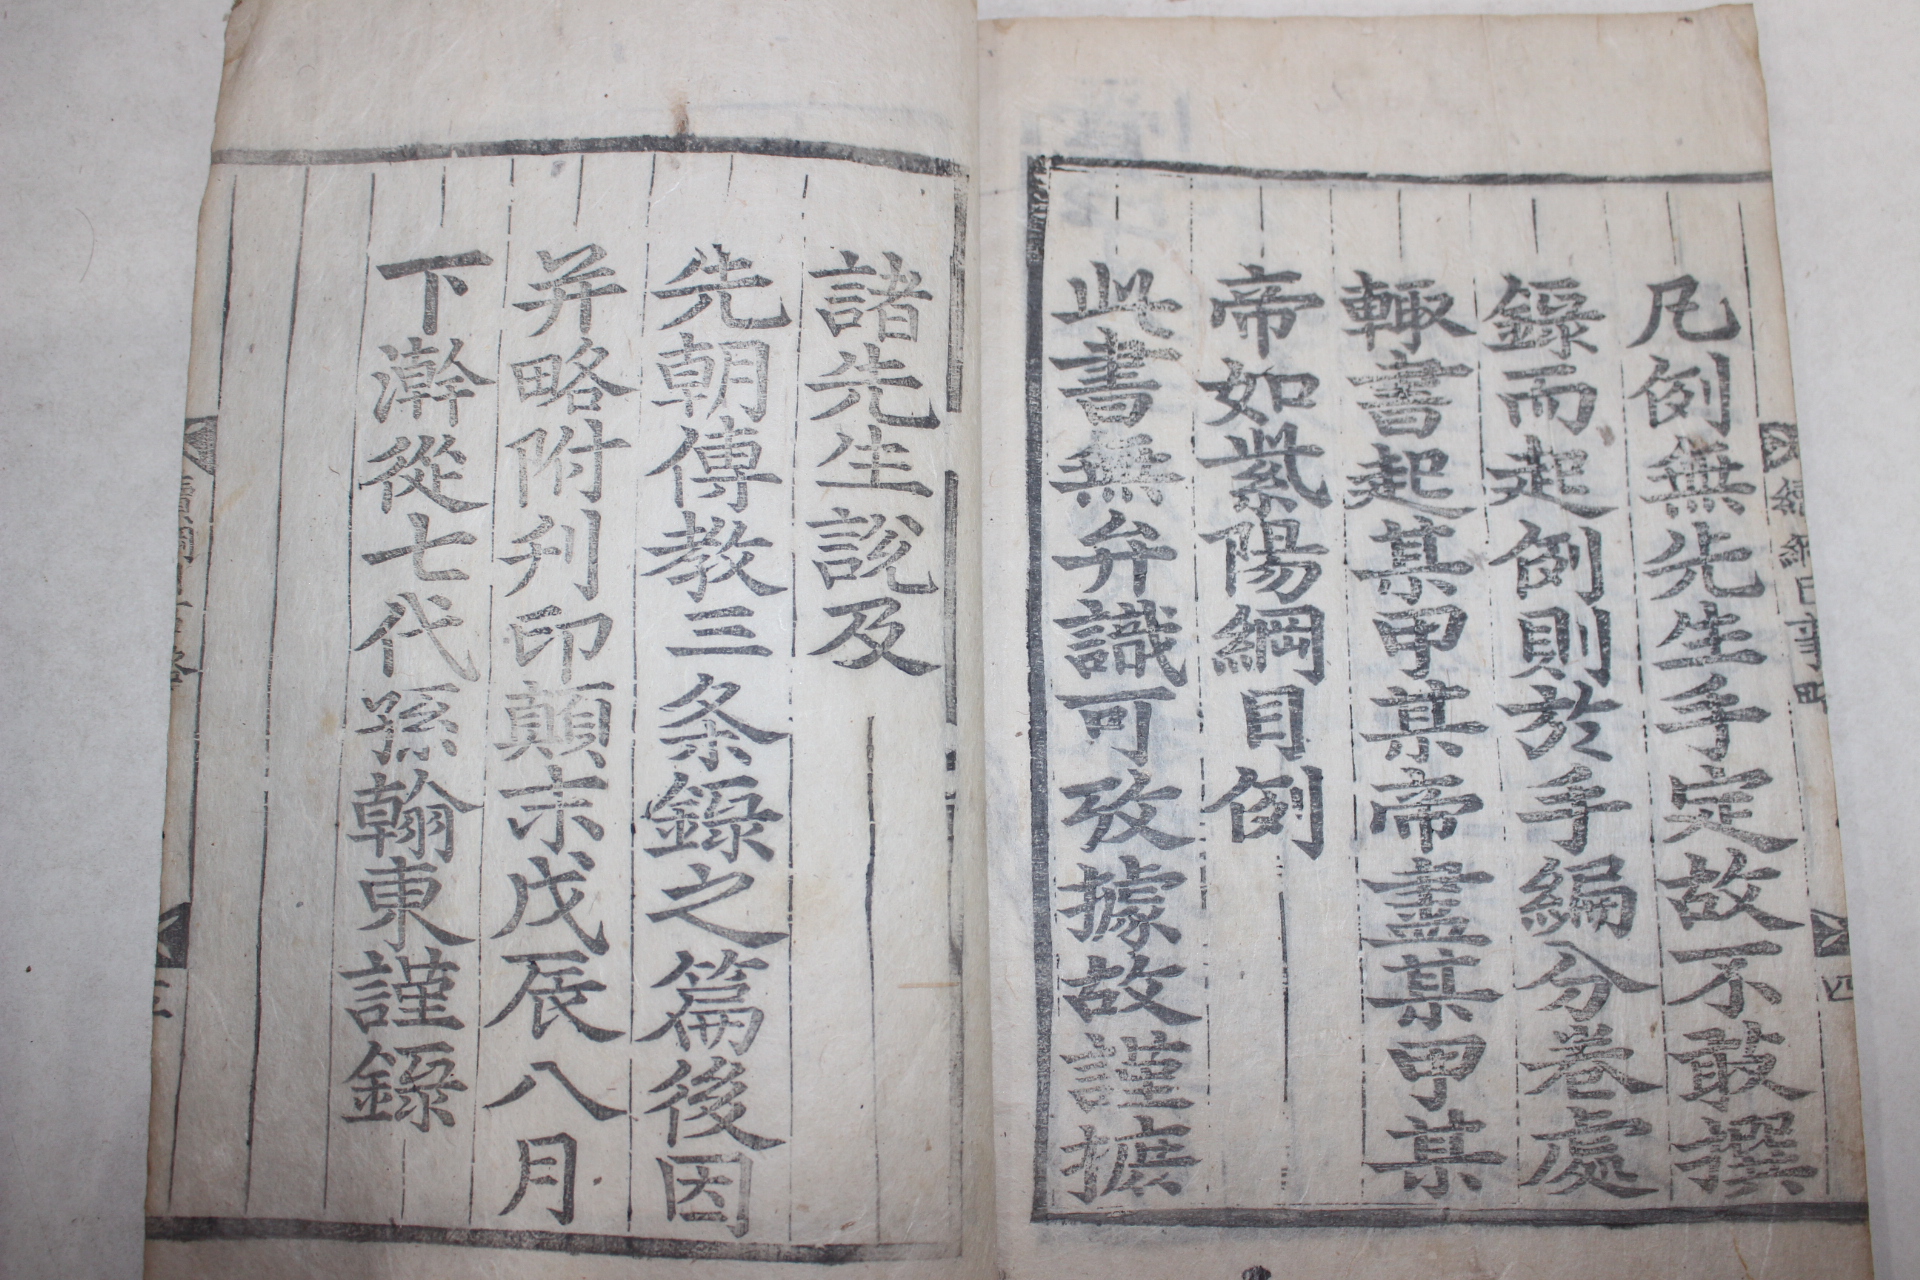 凡例無先生手定故不敢撰
錄而起例則於手編分卷處
輒書起某甲某帝盡某甲某
帝如紫陽綱目例
此書無弁識可攷據故謹摭
諸先生說及
先朝傳教三条錄之篇後因
并略附刊印顚末戊辰八月
下澣從七代孫翰東謹錄
四